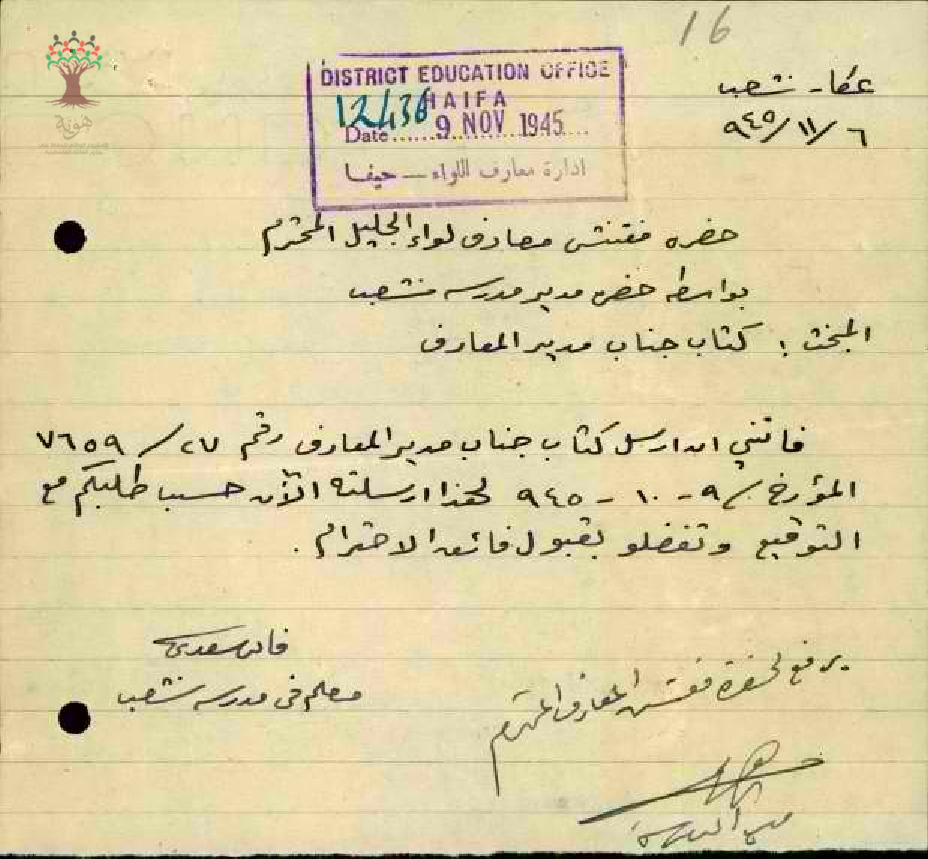 16
عكا - شعب
٦/١١/٩٤٥
DISTRICT EDUCATION OFFICE
HAIFA
12436
Date 9 NOV 1945
ادارة معارف اللواء - حيفا
هوية
حضرة مفتش معارف لواء الجليل المحترم
بواسطة حضرة مدير مدرسة شعب
المبحث : كتاب جناب مدير المعارف
فاتني ان ارسل كتاب جناب مدير المعارف رقم ٢٧/٧٦٥٩
المؤرخ في ٩ - ١٠ - ٩٤٥ لهذا ارسلته الآن حسب طلبكم مع
التوقيع وتفضلو بقبول فائق الاحترام .
سعدي
معلم في مدرسة شعب
يرفع لحضرة مفتش المعارف المحترم
مدير المدرسة